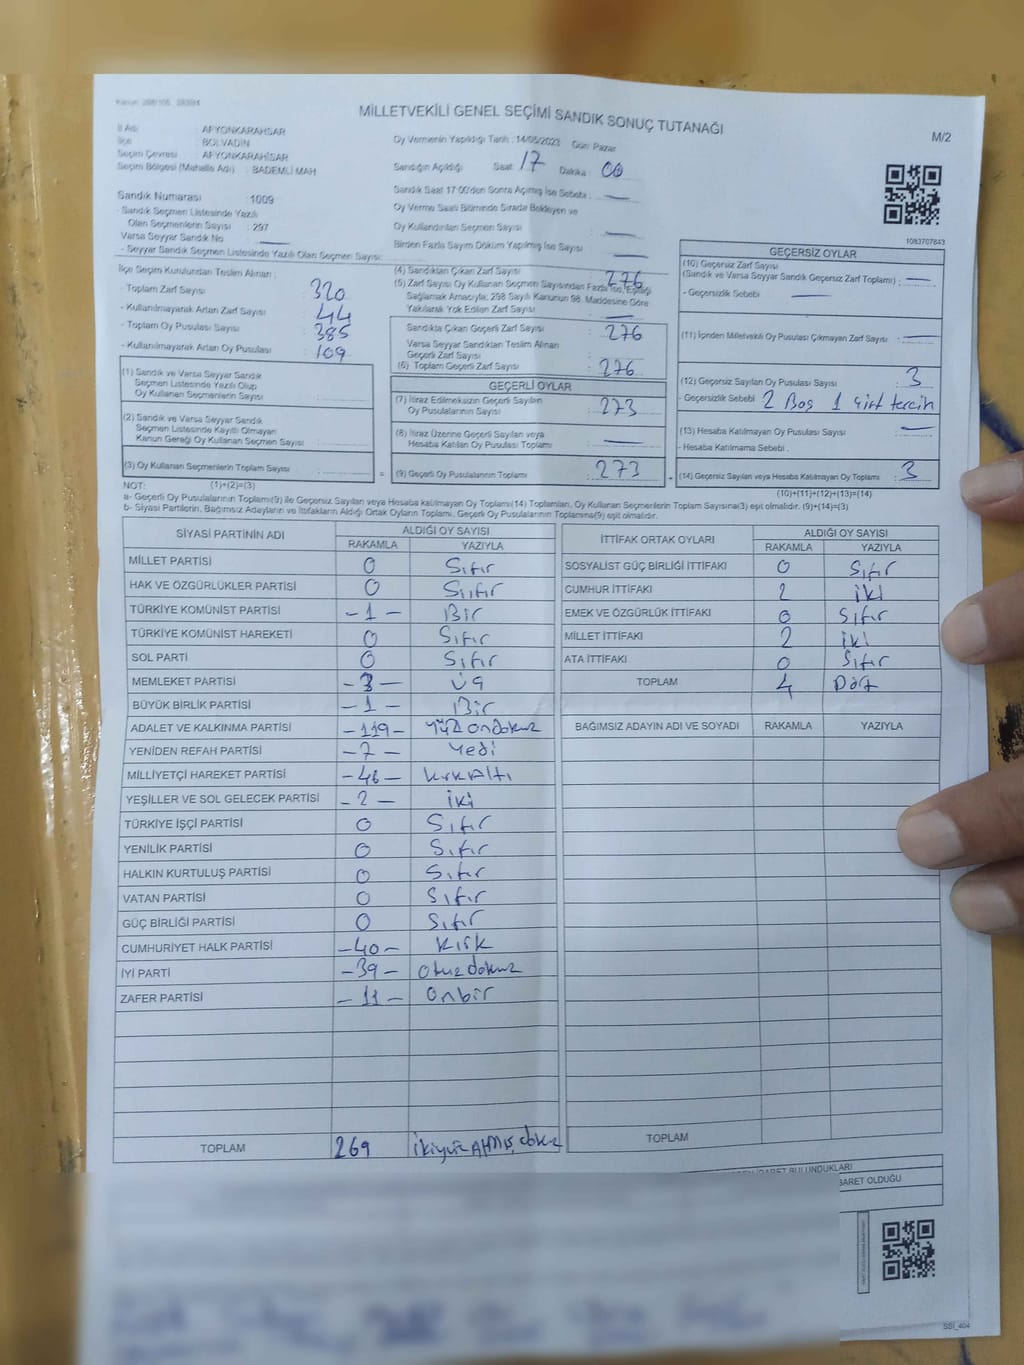 MİLLETVEKİLİ GENEL SEÇİMİ SANDIK SONUÇ TUTANAĞI
M/2
İl Adı : AFYONKARAHİSAR
İlçe : BOLVADİN
Seçim Çevresi : AFYONKARAHİSAR
Seçim Bölgesi (Mahalle Adı) : BADEMLİ MAH
Oy Vermenin Yapıldığı Tarih : 14/05/2023 Gün: Pazar
Sandığın Açıldığı Saat : 17 Dakika : 00
Sandık Saat 17:00'den Sonra Açılmış İse Sebebi : —
Oy Verme Saati Bitiminde Sırada Bekleyen ve
Oy Kullandırılan Seçmen Sayısı : —
Birden Fazla Sayım Döküm Yapılmış İse Sayısı : —
Sandık Numarası : 1009
- Sandık Seçmen Listesinde Yazılı
Olan Seçmenlerin Sayısı : 297
Varsa Seyyar Sandık No : —
- Seyyar Sandık Seçmen Listesinde Yazılı Olan Seçmen Sayısı:
1083707843
İlçe Seçim Kurulundan Teslim Alınan :
- Toplam Zarf Sayısı : 320
- Kullanılmayarak Artan Zarf Sayısı : 44
- Toplam Oy Pusulası Sayısı : 385
- Kullanılmayarak Artan Oy Pusulası : 109
(1) Sandık ve Varsa Seyyar Sandık
Seçmen Listesinde Yazılı Olup
Oy Kullanan Seçmenlerin Sayısı :
(2) Sandık ve Varsa Seyyar Sandık
Seçmen Listesinde Kayıtlı Olmayan
Kanun Gereği Oy Kullanan Seçmen Sayısı :
(3) Oy Kullanan Seçmenlerin Toplam Sayısı :
(4) Sandıktan Çıkan Zarf Sayısı : 276
(5) Zarf Sayısı Oy Kullanan Seçmen Sayısından Fazla İse, Eşitliği
Sağlamak Amacıyla; 298 Sayılı Kanunun 98. Maddesine Göre
Yakılarak Yok Edilen Zarf Sayısı : —
Sandıkta Çıkan Geçerli Zarf Sayısı : 276
Varsa Seyyar Sandıktan Teslim Alınan
Geçerli Zarf Sayısı :
(6) Toplam Geçerli Zarf Sayısı : 276
GEÇERLİ OYLAR
(7) İtiraz Edilmeksizin Geçerli Sayılan
Oy Pusulalarının Sayısı : 273
(8) İtiraz Üzerine Geçerli Sayılan veya
Hesaba Katılan Oy Pusulası Toplamı : —
= (9) Geçerli Oy Pusulalarının Toplamı : 273
GEÇERSİZ OYLAR
(10) Geçersiz Zarf Sayısı
(Sandık ve Varsa Seyyar Sandık Geçersiz Zarf Toplamı) : —
- Geçersizlik Sebebi : —
(11) İçinden Milletvekili Oy Pusulası Çıkmayan Zarf Sayısı : —
(12) Geçersiz Sayılan Oy Pusulası Sayısı : 3
- Geçersizlik Sebebi : 2 Boş 1 Çift tercih
(13) Hesaba Katılmayan Oy Pusulası Sayısı : —
- Hesaba Katılmama Sebebi :
(14) Geçersiz Sayılan veya Hesaba Katılmayan Oy Toplamı : 3
NOT: (1)+(2)=(3)
(10)+(11)+(12)+(13)=(14)
a- Geçerli Oy Pusulalarının Toplamı(9) ile Geçersiz Sayılan veya Hesaba katılmayan Oy Toplamı(14) Toplamları, Oy Kullanan Seçmenlerin Toplam Sayısına(3) eşit olmalıdır. (9)+(14)=(3)
b- Siyasi Partilerin, Bağımsız Adayların ve İttifakların Aldığı Ortak Oyların Toplamı, Geçerli Oy Pusulalarının Toplamına(9) eşit olmalıdır.
SİYASİ PARTİNİN ADI ALDIĞI OY SAYISI
RAKAMLA YAZIYLA
MİLLET PARTİSİ 0 Sıfır
HAK VE ÖZGÜRLÜKLER PARTİSİ 0 Sıfır
TÜRKİYE KOMÜNİST PARTİSİ -1- Bir
TÜRKİYE KOMÜNİST HAREKETİ 0 Sıfır
SOL PARTİ 0 Sıfır
MEMLEKET PARTİSİ -3- Üç
BÜYÜK BİRLİK PARTİSİ -1- Bir
ADALET VE KALKINMA PARTİSİ -119- Yüz ondokuz
YENİDEN REFAH PARTİSİ -7- Yedi
MİLLİYETÇİ HAREKET PARTİSİ -46- Kırk Altı
YEŞİLLER VE SOL GELECEK PARTİSİ -2- iki
TÜRKİYE İŞÇİ PARTİSİ 0 Sıfır
YENİLİK PARTİSİ 0 Sıfır
HALKIN KURTULUŞ PARTİSİ 0 Sıfır
VATAN PARTİSİ 0 Sıfır
GÜÇ BİRLİĞİ PARTİSİ 0 Sıfır
CUMHURİYET HALK PARTİSİ -40- Kırk
İYİ PARTİ -39- Otuz dokuz
ZAFER PARTİSİ -11- Onbir
TOPLAM 269 ikiyüz Altmış dokuz
İTTİFAK ORTAK OYLARI ALDIĞI OY SAYISI
RAKAMLA YAZIYLA
SOSYALİST GÜÇ BİRLİĞİ İTTİFAKI 0 Sıfır
CUMHUR İTTİFAKI 2 iki
EMEK VE ÖZGÜRLÜK İTTİFAKI 0 Sıfır
MİLLET İTTİFAKI 2 iki
ATA İTTİFAKI 0 Sıfır
TOPLAM 4 Dört
BAĞIMSIZ ADAYIN ADI VE SOYADI RAKAMLA YAZIYLA
TOPLAM
İBARET BULUNDUKLARI
İBARET OLDUĞU
SSİ_404